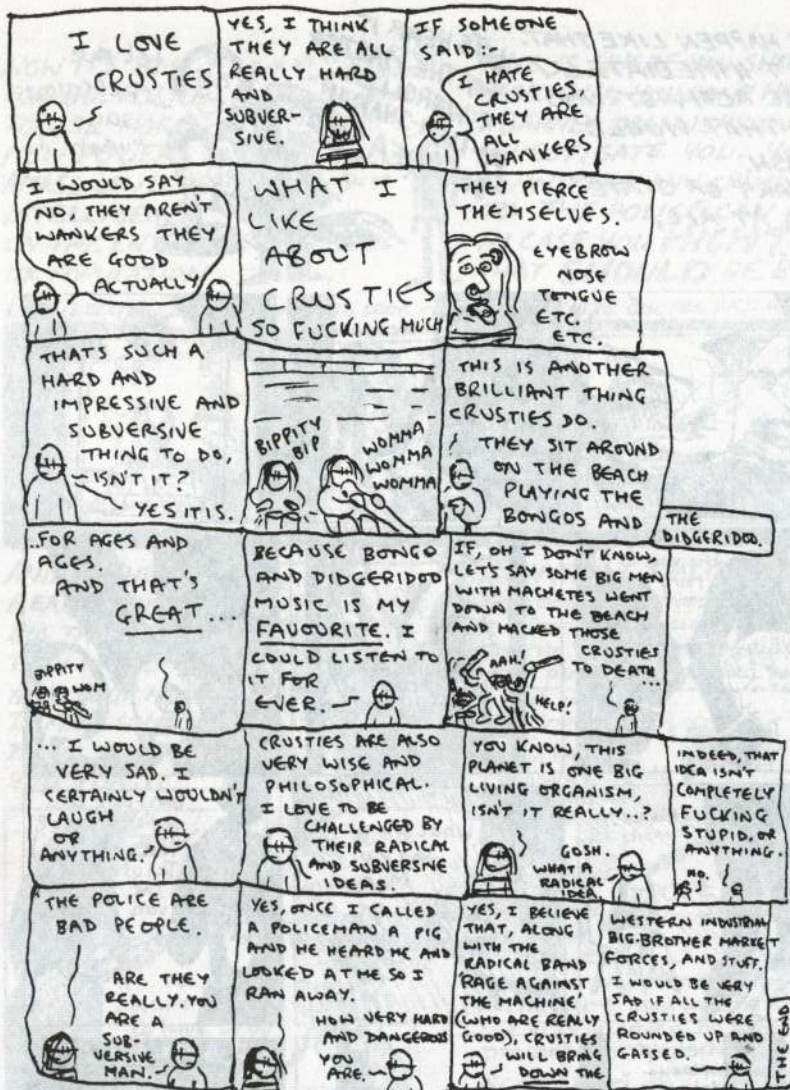 I LOVE
CRUSTIES
YES, I THINK
THEY ARE ALL
REALLY HARD
AND
SUBVER-
SIVE.
IF SOMEONE
SAID:-
I HATE
CRUSTIES.
THEY ARE
ALL
WANKERS
I WOULD SAY
NO, THEY AREN'T
WANKERS THEY
ARE GOOD
ACTUALLY
WHAT I
LIKE
ABOUT
CRUSTIES
SO FUCKING MUCH
THEY PIERCE
THEMSELVES.
EYEBROW
NOSE
TONGUE
ETC.
ETC.
THAT'S SUCH A
HARD AND
IMPRESSIVE AND
SUBVERSIVE
THING TO DO,
ISN'T IT?
YES IT IS.
BIPPITY
BIP
WOMMA
WOMMA
WOMMA
THIS IS ANOTHER
BRILLIANT THING
CRUSTIES DO.
THEY SIT AROUND
ON THE BEACH
PLAYING THE
BONGOS AND
THE
DIDGERIDOO.
...FOR AGES AND
AGES.
AND THAT'S
GREAT...
BIPPITY
WOM
BECAUSE BONGO
AND DIDGERIDOO
MUSIC IS MY
FAVOURITE. I
COULD LISTEN TO
IT FOR
EVER.
IF, OH I DON'T KNOW,
LET'S SAY SOME BIG MEN
WITH MACHETES WENT
DOWN TO THE BEACH
AND HACKED THOSE
CRUSTIES
TO DEATH
...
AAH!
HELP!
... I WOULD BE
VERY SAD. I
CERTAINLY WOULDN'T
LAUGH
OR
ANYTHING.
CRUSTIES ARE ALSO
VERY WISE AND
PHILOSOPHICAL.
I LOVE TO BE
CHALLENGED BY
THEIR RADICAL
AND SUBVERSIVE
IDEAS.
YOU KNOW, THIS
PLANET IS ONE BIG
LIVING ORGANISM,
ISN'T IT REALLY..?
GOSH.
WHAT A
RADICAL
IDEA
INDEED, THAT
IDEA ISN'T
COMPLETELY
FUCKING
STUPID, OR
ANYTHING.
NO.
THE POLICE ARE
BAD PEOPLE.
ARE THEY
REALLY. YOU
ARE A
SUB-
VERSIVE
MAN.
YES, ONCE I CALLED
A POLICEMAN A PIG
AND HE HEARD ME AND
LOOKED AT ME SO I
RAN AWAY.
HOW VERY HARD
AND DANGEROUS
YOU
ARE.
YES, I BELIEVE
THAT, ALONG
WITH THE
RADICAL BAND
'RAGE AGAINST
THE MACHINE'
(WHO ARE REALLY
GOOD), CRUSTIES
WILL BRING
DOWN THE
WESTERN INDUSTRIAL
BIG-BROTHER MARKET
FORCES, AND STUFF.
I WOULD BE VERY
SAD IF ALL THE
CRUSTIES WERE
ROUNDED UP AND
GASSED.
THE END